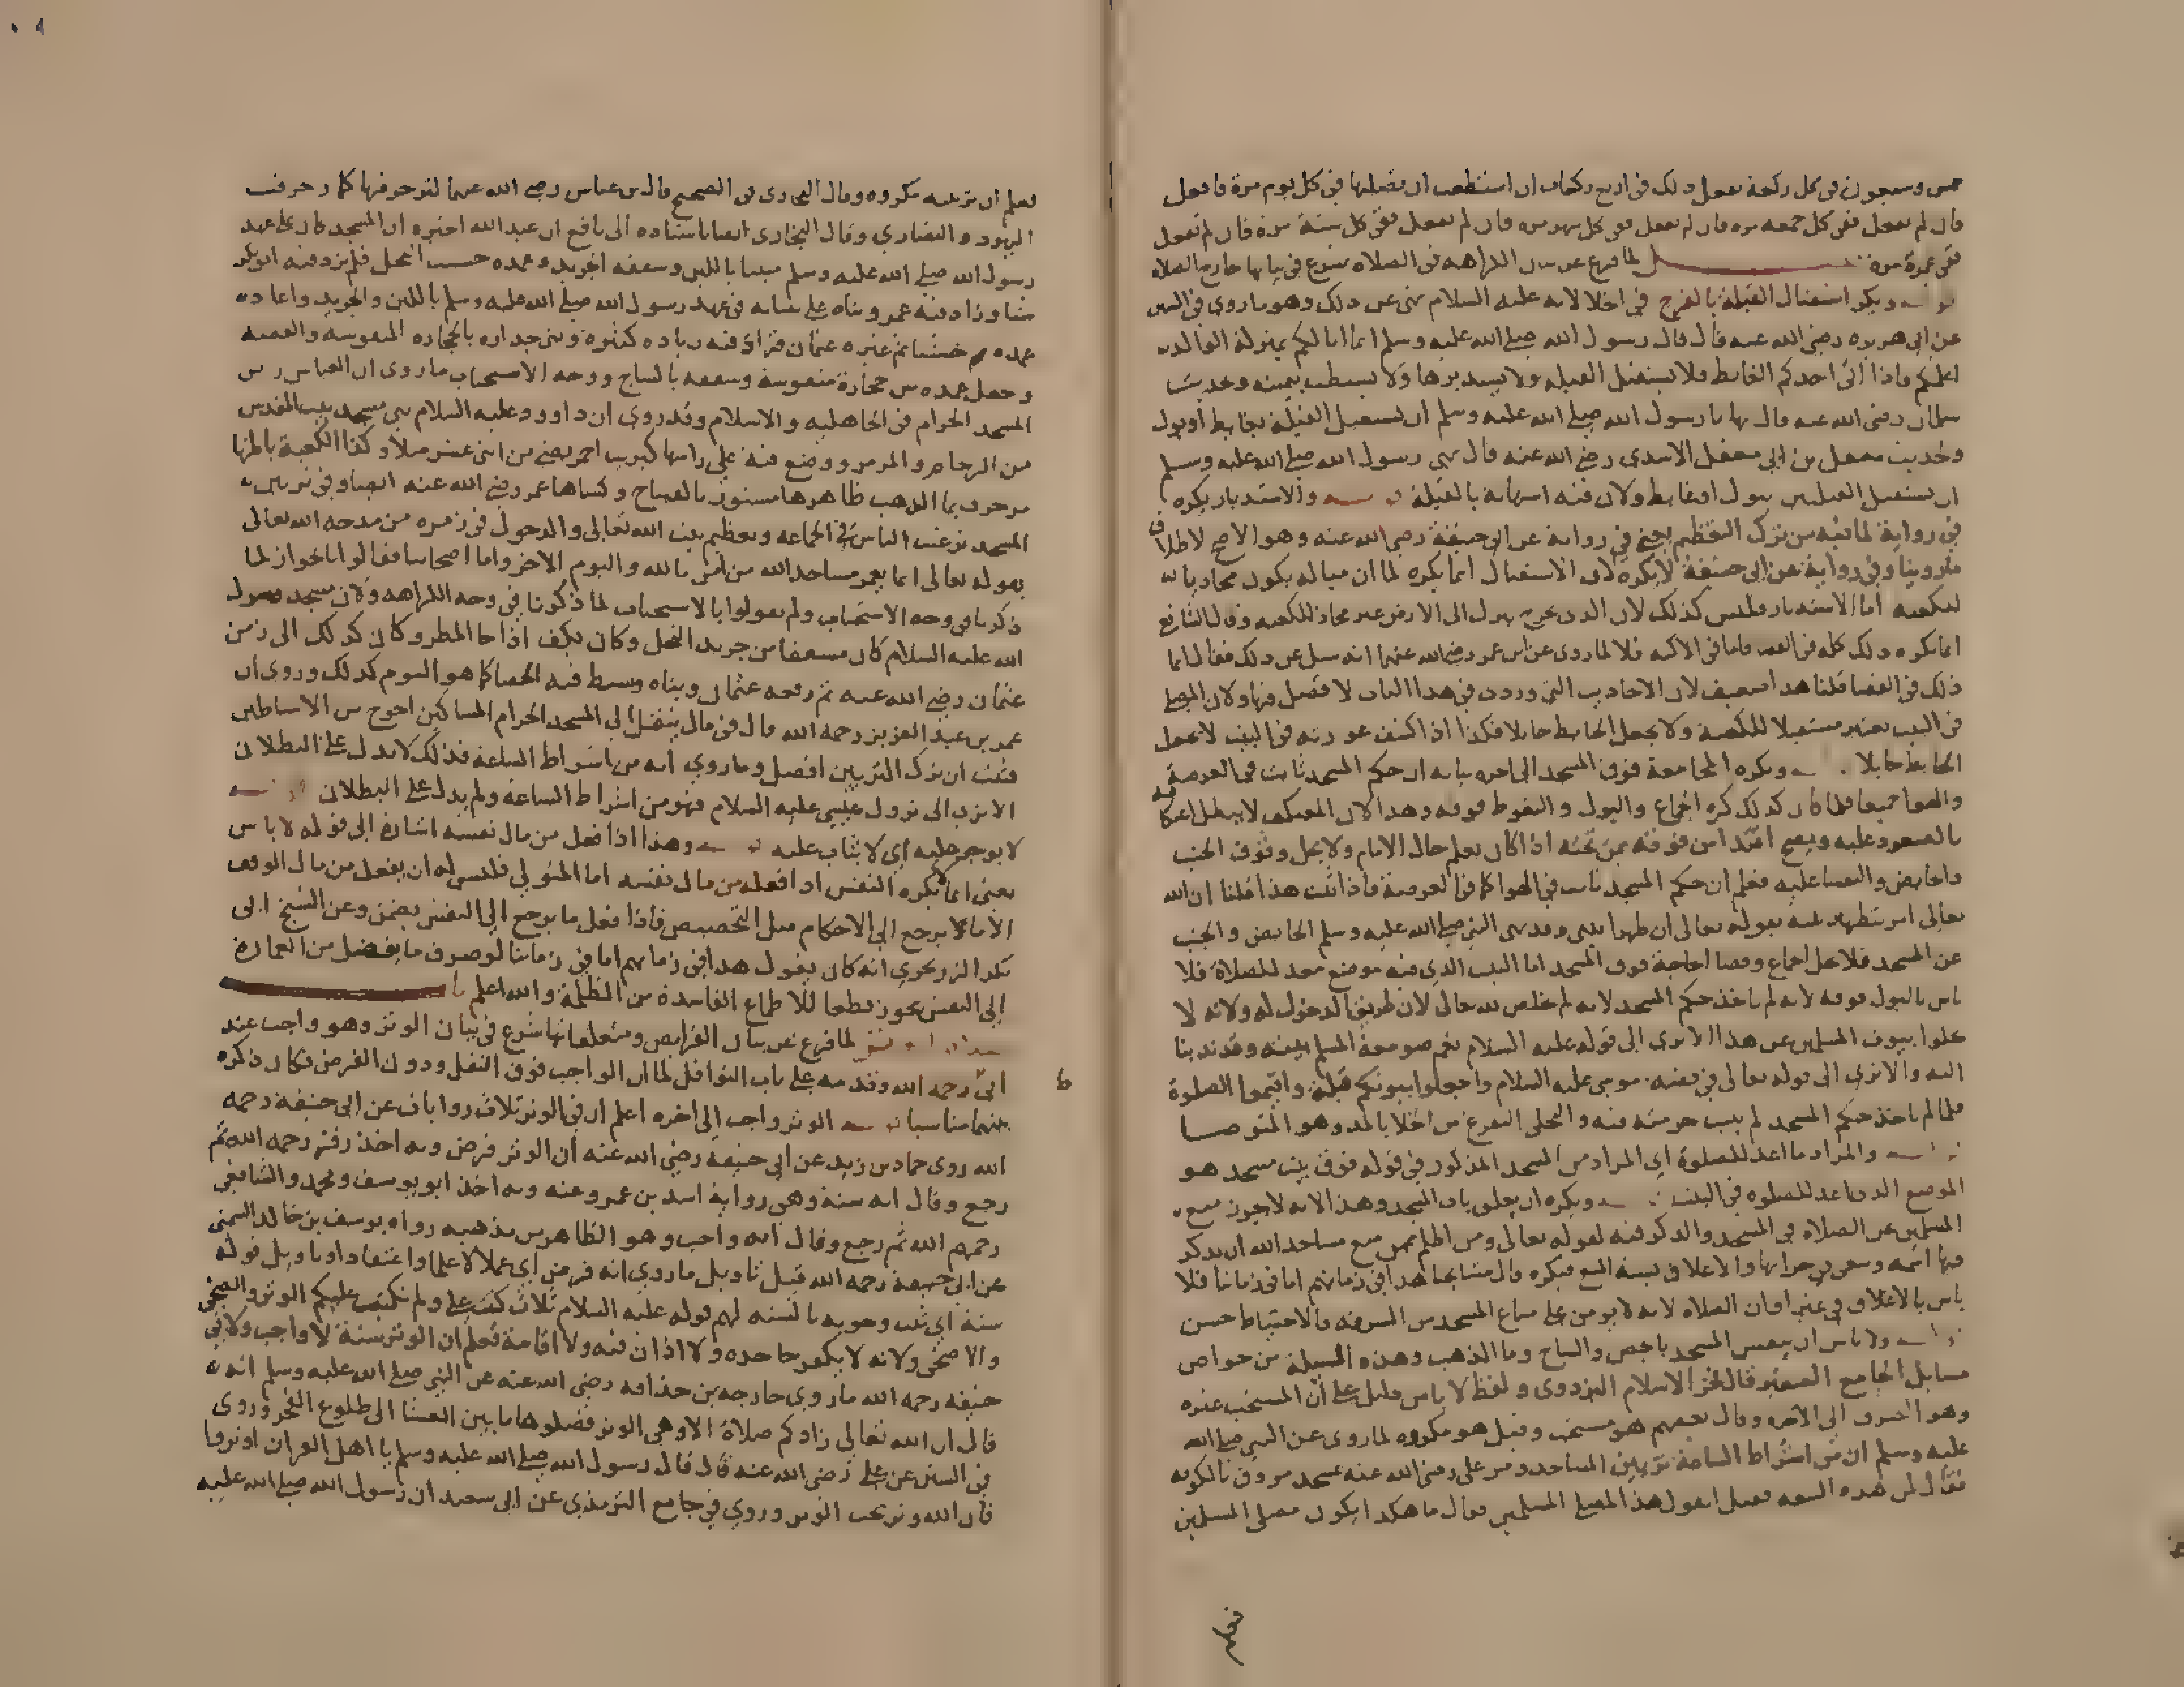 خمس وسبعون في كل ركعة تفعل ذلك في اربع ركعات ان استطعت ان تصليها في كل يوم مرة فافعل
فان لم تفعل ففي كل جمعة مرة فان لم تفعل ففي كل شهر مرة فان لم تفعل ففي كل سنة مرة فان لم تفعل
ففي عمرك مرة لما فرغ عن بيان الكراهة في الصلاة شرع في بيانها خارج الصلاة
ويكره استقبال القبلة بالفرج في الخلا لانه عليه السلام نهى عن ذلك وهو ما روي في السنن
عن ابي هريرة رضي الله عنه قال قال رسول الله صلى الله عليه وسلم انما انا لكم بمنزلة الوالد
اعلمكم فاذا اتى احدكم الغايط فلا يستقبل القبلة ولا يستدبرها ولا يستطب بيمينه وحديث
سلمان رضي الله عنه قال نهانا رسول الله صلى الله عليه وسلم ان نستقبل القبلة بغايط او بول
ولحديث معقل بن ابي معقل الاسدي رضي الله عنه قال نهى رسول الله صلى الله عليه وسلم
ان نستقبل القبلتين ببول او غايط ولان فيه استهانة بالقبلة والاستدبار يكره
في رواية لما فيه من ترك التعظيم يعني في رواية عن ابي حنيفة رضي الله عنه وهو الاصح لاطلاق
ما روينا وفي رواية عن ابي حنيفة لا يكره لان الاستقبال انما يكره لما ان مباله يكون محاذيا
للكعبة اما الاستدبار فليس كذلك لان الذي يخرج ينزل الى الارض غير محاذ للكعبة وقال الشافعي
انما يكره ذلك كله في الفضا فاما في الاكنة فلا لما روي عن ابن عمر رضي الله عنهما انه سئل عن ذلك فقال انما
ذلك في الفضا قلنا هذا ضعيف لان الاحاديث التي وردت في هذا الباب لا فصل فيها ولان المصلي
في البيت يعتبر مستقبلا للكعبة ولا يجعل الحايط حايلا فكذا اذا كشف عورته في البيت لا يجعل
الحايط حايلا ويكره المجامعة فوق المسجد الى اخره بيانه ان حكم المسجد ثابت في العرصة
والهوا جميعا فلما كان كذلك كره الجماع والبول والتغوط فوقه وهذا لان المعتكف لا يبطل اعتكافه
بالصعود عليه ويصح اقتدا من فوقه بمن تحته اذا كان يعلم حال الامام ولا يحل وقوف الجنب
والحايض والنفسا عليه فعلم ان حكم المسجد ثابت في الهوا كما في العرصة فاذا ثبت هذا قلنا ان الله
تعالى امر بتطهير بيته بقوله تعالى ان طهرا بيتي وقد نهى النبي صلى الله عليه وسلم الحايض والجنب
عن المسجد فلا يحل الجماع وقضا الحاجة فوق المسجد اما البيت الذي فيه موضع معد للصلاة فلا
باس بالبول فوقه لانه لم ياخذ حكم المسجد لانه لم يخلص لله تعالى لان طريق الدخول له ولانه لا
تخلوا بيوت المسلمين عن هذا الا ترى الى قوله عليه السلام نعم صومعة المسلم بيته وقد ندبنا
اليه والا ترى الى قوله تعالى في قصة موسى عليه السلام واجعلوا بيوتكم قبلة واقيموا الصلوة
فلما لم ياخذ حكم المسجد لم يثبت حرمته فيه والتخلي التفرغ من الخلا بالمد وهو المتوضا
والمراد ما اعد للصلوة اي المراد من المسجد المذكور في قوله فوق بيت مسجد هو
الموضع الذي اعد للصلوة في البيت ويكره ان يغلق باب المسجد وهذا لانه لا يجوز منع
المسلمين عن الصلاة في المسجد والذكر فيه لقوله تعالى ومن اظلم ممن منع مساجد الله ان يذكر
فيها اسمه وسعى في خرابها والاغلاق يشبه المنع فيكره قال مشايخنا هذا في زمانهم اما في زماننا فلا
باس بالاغلاق في غير اوان الصلاة لانه لا يؤمن على متاع المسجد من السرقة والاحتياط حسن
ولا باس ان ينقش المسجد بالجص والساج وما الذهب وهذه المسيلة من خواص
مسايل الجامع الصغير قال فخر الاسلام البزدوي ولفظ لا باس دليل على ان المستحب غيره
وهو الصرف الى الفقره وقال بعضهم هو مستحب وقيل هو مكروه لما روي عن النبي صلى الله
عليه وسلم ان من اشراط الساعة تزيين المساجد ومر علي رضي الله عنه بمسجد مزوق بالكوفة
فقال لمن هذه البيعة فقيل له هذا المصلى المسلمين فقال ما هكذا يكون مصلى المسلمين
فعلم
فعلم ان تزيينه مكروه وقال البخاري في الصحيح قال بن عباس رضي الله عنهما لتزخرفنها كما زخرفت
اليهود والنصارى وقال البخاري ايضا باسناده الى نافع ان عبد الله اخبره ان المسجد كان على عهد
رسول الله صلى الله عليه وسلم مبنيا باللبن وسقفه الجريد وعمده خشب النخل فلم يزد فيه ابو بكر
شيا وزاد فيه عمر وبناه على بنيانه في عهد رسول الله صلى الله عليه وسلم باللبن والجريد واعاد
عمده خشبا ثم غيره عثمان فزاد فيه زيادة كثيرة وبنى جداره بالحجارة المنقوشة والقصة
وجعل عمده من حجارة منقوشة وسقفه بالساج ووجه الاستحباب ما روي ان العباس زين
المسجد الحرام في الجاهلية والاسلام وقد روي ان داود عليه السلام بنى مسجد بيت المقدس
من الرخام والمرمر ووضع فيه على راسها كبريت احمر يضي من اثني عشر ميلا وكذا الكعبة باطنها
مزخرف بما الذهب ظاهرها مستور بالديباج وكساها عمر رضي الله عنه ايضا وفي تزيين
المسجد ترغيب الناس في الجماعة وتعظيم بيت الله تعالى والدخول في زمرة من مدحه الله تعالى
بقوله تعالى انما يعمر مساجد الله من امن بالله واليوم الاخر واما اصحابنا فقالوا بالجواز لما
ذكرنا في وجه الاستحباب ولم يقولوا بالاستحباب لما ذكرنا في وجه الكراهة ولان مسجد رسول
الله عليه السلام كان مسقفا من جريد النخل وكان يكف اذا جا المطر وكان كذلك الى زمن
عثمان رضي الله عنه ثم رفعه عثمان وبناه وبسط فيه الحصا كما هو اليوم كذلك وروي ان
عمر بن عبد العزيز رحمه الله قال في مال ينقل الى المسجد الحرام المساكين احوج من الاساطين
فثبت ان ترك التزيين افضل وما روي انه من اشراط الساعة فذلك لا يدل على البطلان
الا ترى الى نزول عيسى عليه السلام فهو من اشراط الساعة ولم يدل على البطلان
لا يوجر عليه اي لا يثاب عليه وهذا اذا فعل من مال نفسه اشارة الى قوله لا باس
يعني انما يكره النقش اذا فعله من مال نفسه اما المتولي فليس له ان يفعل من مال الوقف
الا ما يرجع الى الاحكام مثل التجصيص فاذا فعل ما يرجع الى النقش يضمن وعن الشيخ ابي
بكر الزرنجري انه كان يقول هذا في زمانهم اما في زماننا لو صرف ما يفضل من العمارة
الى النقش يجوز قطعا للاطماع الفاسدة من الظلمة والله اعلم باب
صلاة الوتر لما فرغ عن بيان الفرايض ومتعلقاتها شرع في بيان الوتر وهو واجب عند
ابي رحمه الله وقدمه على باب النوافل لما ان الواجب فوق النفل ودون الفرض فكان ذكره
بينهما مناسبا الوتر واجب الى اخره اعلم ان في الوتر ثلاث روايات عن ابي حنيفة رحمه
الله روى حماد بن زيد عن ابي حنيفة رضي الله عنه ان الوتر فرض وبه اخذ زفر رحمه الله ثم
رجع وقال انه سنة وهي رواية اسد بن عمرو عنه وبه اخذ ابو يوسف ومحمد والشافعي
رحمهم الله ثم رجع وقال انه واجب وهو الظاهر من مذهبه رواه يوسف بن خالد السمتي
عن ابي حنيفة رحمه الله قيل تاويل ما روي انه فرض اي عملا لا علما واعتقادا وتاويل قوله
سنة اي ثبت وجوبه بالسنة لهم قوله عليه السلام ثلاث كتبت علي ولم تكتب عليكم الوتر والضحى
والاضحى ولانه لا يكفر جاحده ولا اذان فيه ولا اقامة فعلم ان الوتر سنة لا واجب ولابي
حنيفة رحمه الله ما روي خارجة بن حذافة رضي الله عنه عن النبي صلى الله عليه وسلم انه
قال ان الله تعالى زادكم صلاة الا وهي الوتر فصلوها ما بين العشا الى طلوع الفجر وروي
في السنن عن علي رضي الله عنه قال قال رسول الله صلى الله عليه وسلم يا اهل القران اوتروا
فان الله وتر يحب الوتر وروي في جامع الترمذي عن ابي سعيد ان رسول الله صلى الله عليه